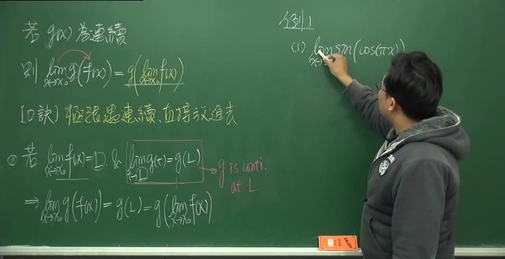 若 g(x) 為連續
則 lim_{x→x₀} g(f(x)) = g(lim_{x→x₀} f(x))
[口訣] 極限遇連續,直接
① 若 lim_{x→x₀} f(x) = L & lim_{t→L} g(t) = g(L)
g is conti. at L
⇒ lim_{x→x₀} g(f(x)) = g(L) = g(lim_{x→x₀} f(x))
例1
(1) lim sin(cos(πx))